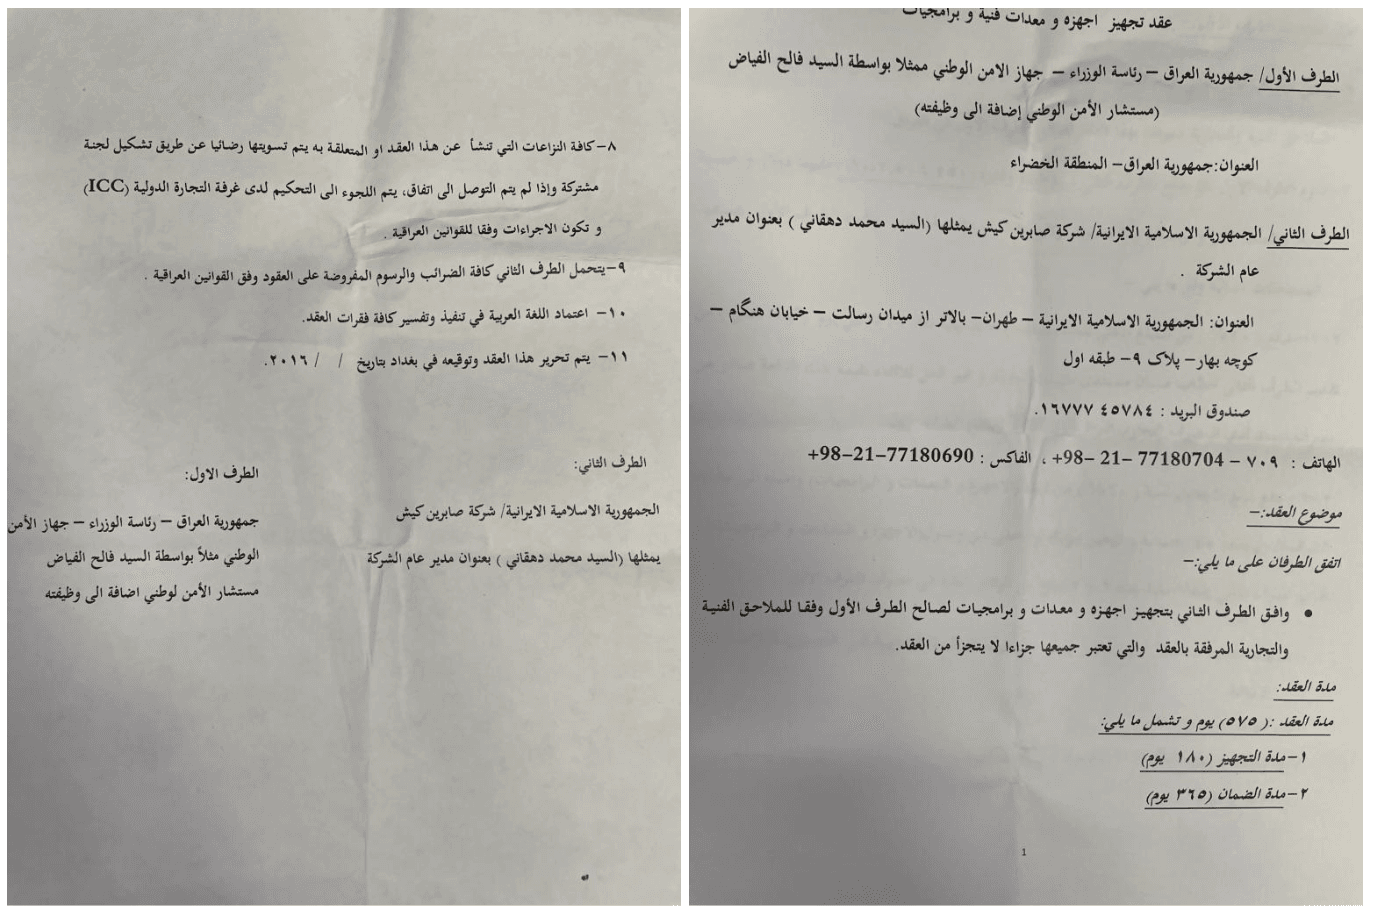 عقد تجهيز اجهزه و معدات فنية و برامجيات
الطرف الأول/ جمهورية العراق – رئاسة الوزراء – جهاز الامن الوطني ممثلا بواسطة السيد فالح الفياض
(مستشار الأمن الوطني إضافة الى وظيفته)
العنوان:جمهورية العراق– المنطقة الخضراء
الطرف الثاني/ الجمهورية الاسلامية الايرانية/ شركة صابرين كيش يمثلها (السيد محمد دهقاني ) بعنوان مدير
عام الشركة .
العنوان: الجمهورية الاسلامية الايرانية – طهران– بالاتر از ميدان رسالت – خيابان هنگام –
كوچه بهار– پلاک ٩– طبقه اول
صندوق البريد : ٤٥٧٨٤ ١٦٧٧٧.
الهاتف : ٧٠٩ – 77180704 –21 –98+ ، الفاكس : 77180690–21–98+
موضوع العقد:–
اتفق الطرفان على ما يلي:–
• وافق الطرف الثاني بتجهيز اجهزه و معدات و برامجيات لصالح الطرف الأول وفقا للملاحق الفنية
والتجارية المرفقة بالعقد والتي تعتبر جميعها جزاءا لا يتجزأ من العقد.
مدة العقد:
مدة العقد :( ٥٧٥) يوم و تشمل ما يلي:
١–مدة التجهيز (١٨٠ يوم)
٢–مدة الضمان (٣٦٥ يوم)
1
٨–كافة النزاعات التي تنشأ عن هذا العقد او المتعلقة به يتم تسويتها رضائيا عن طريق تشكيل لجنة
مشتركة وإذا لم يتم التوصل الى اتفاق، يتم اللجوء الى التحكيم لدى غرفة التجارة الدولية (ICC)
و تكون الاجراءات وفقا للقوانين العراقية .
٩–يتحمل الطرف الثاني كافة الضرائب والرسوم المفروضة على العقود وفق القوانين العراقية .
١٠– اعتماد اللغة العربية في تنفيذ وتفسير كافة فقرات العقد.
١١– يتم تحرير هذا العقد وتوقيعه في بغداد بتاريخ / / ٢٠١٦.
الطرف الثاني:
الجمهورية الاسلامية الايرانية/ شركة صابرين كيش
يمثلها (السيد محمد دهقاني ) بعنوان مدير عام الشركة
الطرف الاول:
جمهورية العراق – رئاسة الوزراء – جهاز الأمن
الوطني مثلاً بواسطة السيد فالح الفياض
مستشار الأمن لوطني اضافة الى وظيفته